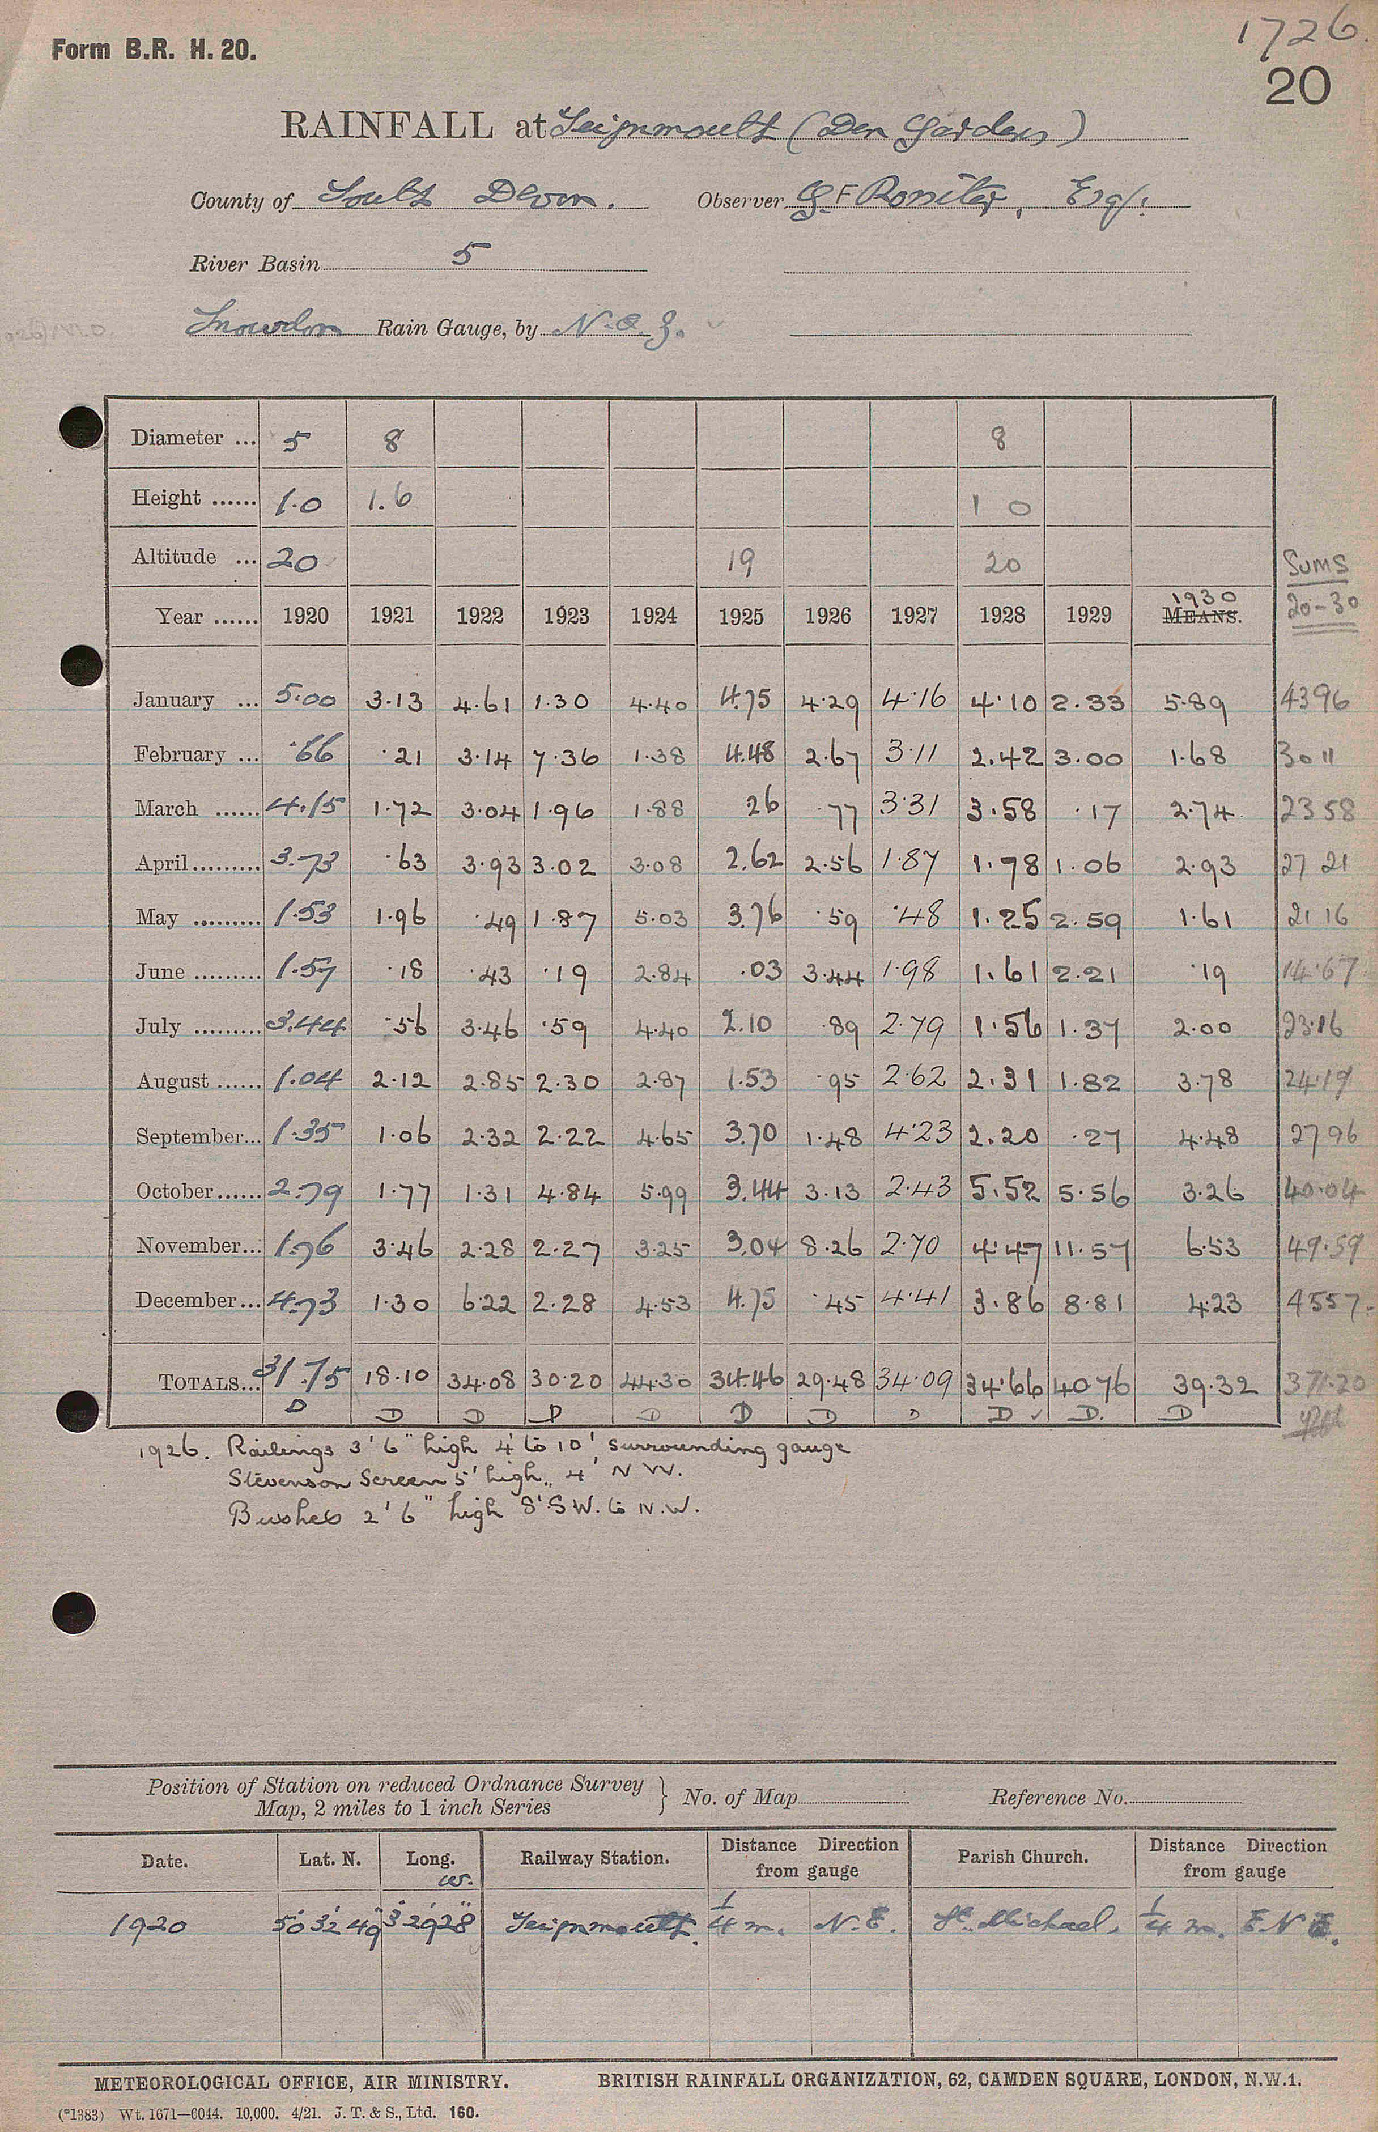 1726.
Form B.R. H. 20.
20
RAINFALL at Teignmouth (Den Gardens)
County of South Devon. Observer G F Rositer, Esq.
River Basin 5
Snowdon Rain Gauge, by N. & Z.
Diameter ... 5 8 8
Height ...... 1.0 1.6 1 0
Altitude ... 20 19 20 Sums
Year ...... 1920 1921 1922 1923 1924 1925 1926 1927 1928 1929 MEANS. 1930 20-30
January ... 5.00 3.13 4.61 1.30 4.40 4.75 4.29 4.16 4.10 2.33 5.89 4396
February ... .66 .21 3.14 7.36 1.38 4.48 2.67 3.11 2.42 3.00 1.68 3011
March ...... 4.15 1.72 3.04 1.96 1.88 26 .77 3.31 3.58 .17 2.74 2358
April......... 3.73 .63 3.93 3.02 3.08 2.62 2.56 1.87 1.78 1.06 2.93 27 21
May ......... 1.53 1.96 .49 1.87 5.03 3.76 .59 .48 1.25 2.59 1.61 21 16
June ......... 1.57 .18 .43 .19 2.84 .03 3.44 1.98 1.61 2.21 .19 14.67
July ......... 3.44 .56 3.46 .59 4.40 2.10 .89 2.79 1.56 1.37 2.00 23.16
August ...... 1.04 2.12 2.85 2.30 2.87 1.53 .95 2.62 2.31 1.82 3.78 24.19
September... 1.35 1.06 2.32 2.22 4.65 3.70 1.48 4.23 2.20 .27 4.48 2796
October...... 2.79 1.77 1.31 4.84 5.99 3.44 3.13 2.43 5.52 5.56 3.26 40.04
November... 1.76 3.46 2.28 2.27 3.25 3.04 8.26 2.70 4.47 11.57 6.53 49.59
December... 4.73 1.30 6.22 2.28 4.53 4.75 .45 4.41 3.86 8.81 4.23 4557
TOTALS... 31.75 18.10 34.08 30.20 44.30 34.46 29.48 34.09 34.66 40.76 39.32 371.20
D D D D D D D D D ✓ D. D
1926. Railings 3' 6" high 4' to 10' surrounding gauge
Stevenson Screen 5' high, 4' N W.
Bushes 2' 6" high 8' S W. to N.W.
Position of Station on reduced Ordnance Survey
Map, 2 miles to 1 inch Series } No. of Map Reference No.
Date. Lat. N. Long. W. Railway Station. Distance Direction from gauge Parish Church. Distance Direction from gauge
1920 50° 32' 49" 3° 29' 28" Teignmouth. 1/4 m. N.E. St. Michael. 1/4 m. E N E.
METEOROLOGICAL OFFICE, AIR MINISTRY. BRITISH RAINFALL ORGANIZATION, 62, CAMDEN SQUARE, LONDON, N.W.1.
(*1383) Wt. 1671—6044. 10,000. 4/21. J. T. & S., Ltd. 160.